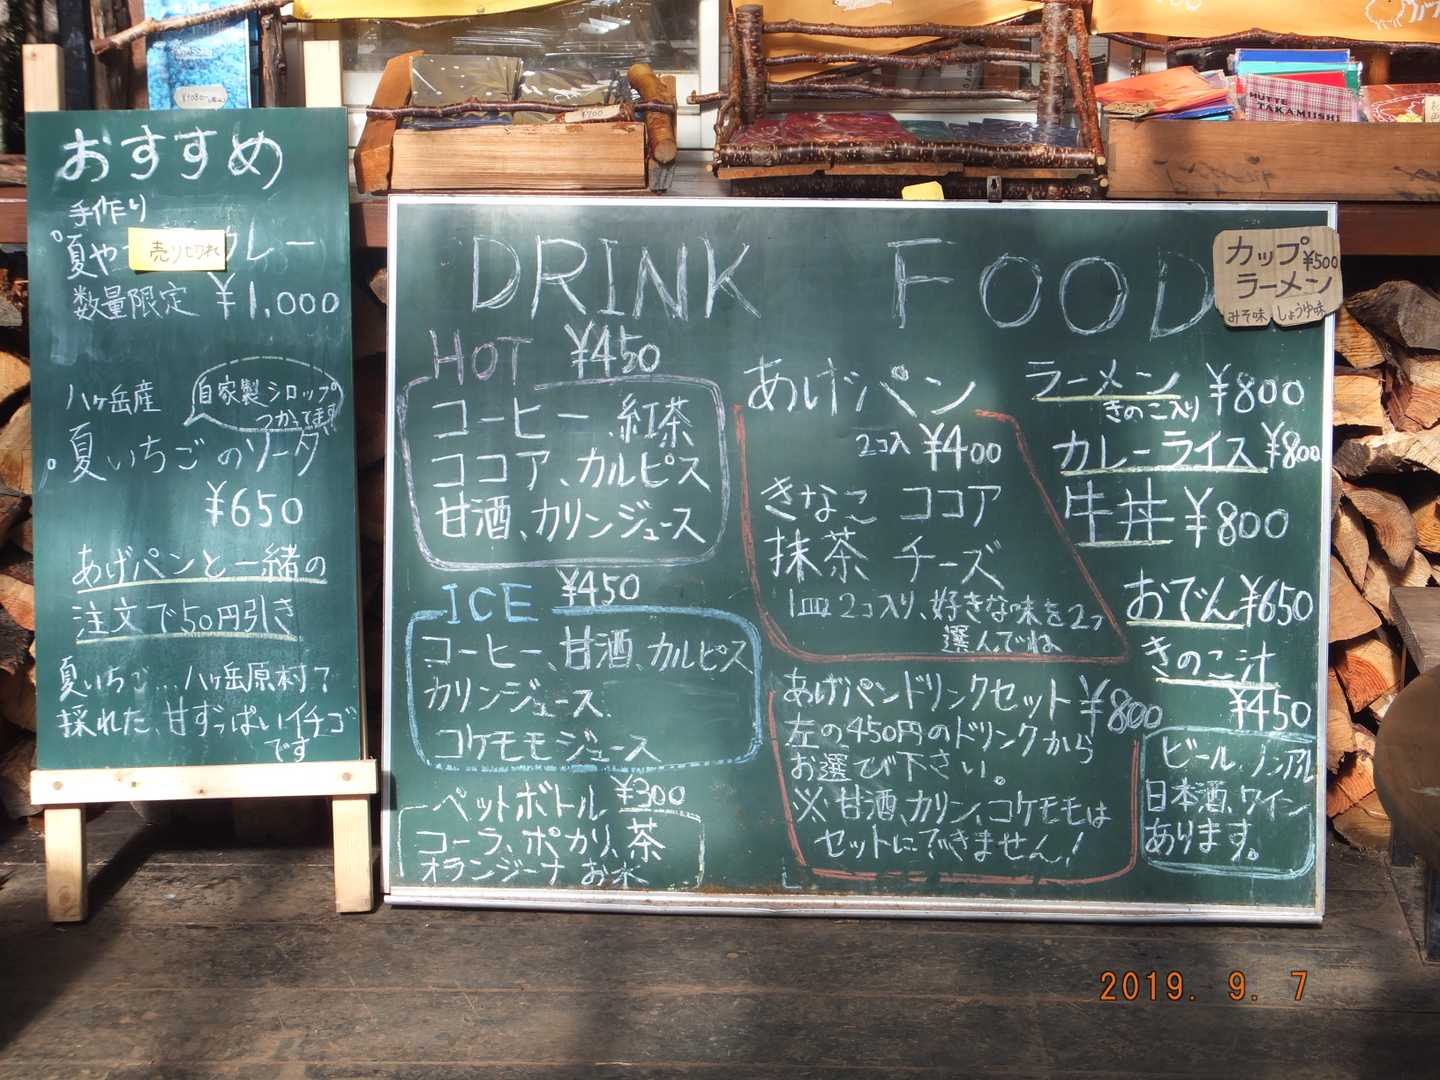 ¥1080-
¥700
HUETTE
TAKAMIISHI
おすすめ
手作り
夏や カレー
売り切れ
数量限定 ¥1,000
八ヶ岳産
自家製シロップ
つかってます
夏いちごのソーダ
¥650
あげパンと一緒の
注文で50円引き
夏いちご…八ヶ岳原村で
採れた、甘ずっぱいイチゴ
です
DRINK
HOT ¥450
コーヒー、紅茶
ココア、カルピス
甘酒、カリンジュース
ICE ¥450
コーヒー、甘酒、カルピス
カリンジュース
コケモモジュース
ペットボトル ¥300
コーラ、ポカリ、茶
オランジーナ お水
FOOD
あげパン
2コ入 ¥400
きなこ ココア
抹茶 チーズ
1皿2コ入り、好きな味を2つ
選んでね
あげパンドリンクセット ¥800
左の450円のドリンクから
お選び下さい。
※甘酒、カリン、コケモモは
セットにできません!
カップ ¥500
ラーメン
みそ味 しょうゆ味
ラーメン ¥800
きのこ入り
カレーライス ¥800
牛丼 ¥800
おでん ¥650
きのこ汁
¥450
ビール、ノンアル
日本酒、ワイン
あります。
2019. 9. 7